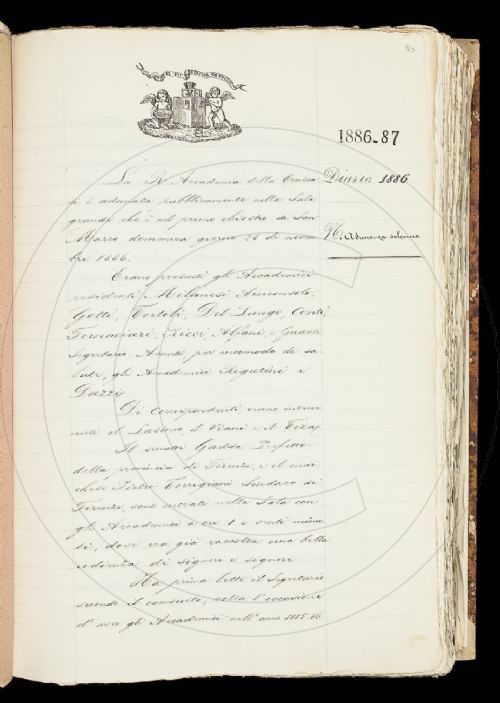 1886-87
Diario 1886
N. Adunanza solenne
La R. Accademia della Crusca
si è adunata pubblicamente nella Sala
grande che è nel primo chiostro di San
Marco domenica giorno 28 di novem
bre 1886.
Erano presenti gli Accademici
residenti, Milanesi Arciconsolo,
Gotti, Tortoli, Del Lungo, Conti,
Tommasini, Ricci, Alfani e Guasti
Segretario. Assenti, per incomodo di sa
lute, gli Accademici Rigutini e
Dazzi.
Di Corrispondenti erano interve
nuti il
Il senator Gadda Prefetto
della provincia di Firenze, e il mar
chese Pietro Torrigiani Sindaco di
Firenze, sono entrati nella Sala con
gli Accademici a ore 1 e venti minu
ti, dove era già raccolta una bella
udienza di signori e signore.
Ha prima letto il Segretario
secondo il consueto, colta l'occasione
d'aver gli Accademici nell'anno 1885-86